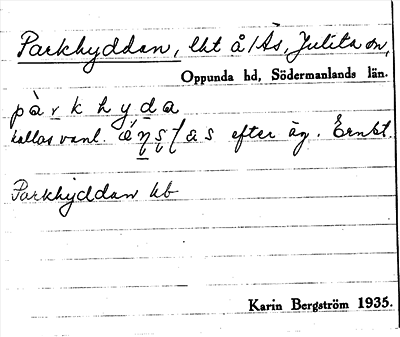 Parkhyddan, lht å /Ås, Julita sn,
Oppunda hd, Södermanlands län.
pàrkhyda
kallas vanl. efter äg. Ernst.
Parkhyddan kb
Karin Bergström 1935.